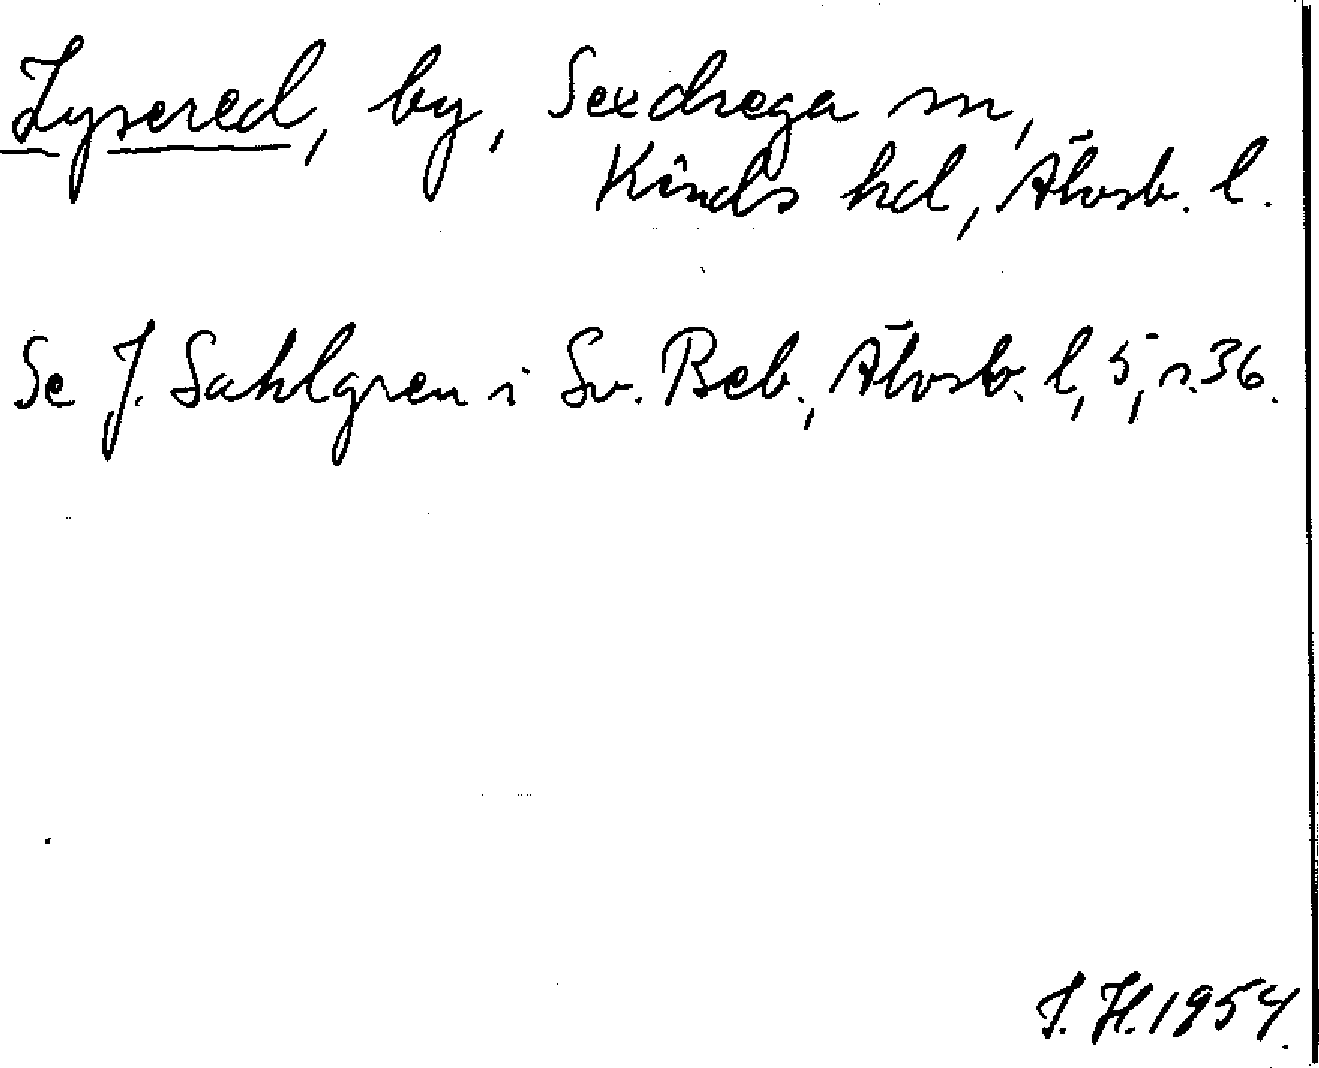 Lysered, by, Sexdrega sn,
Kinds hd, Älvsb. l.
Se J. Sahlgren i Sv. Beb., Älvsb. l, 5, s. 36.
I. H. 1954.